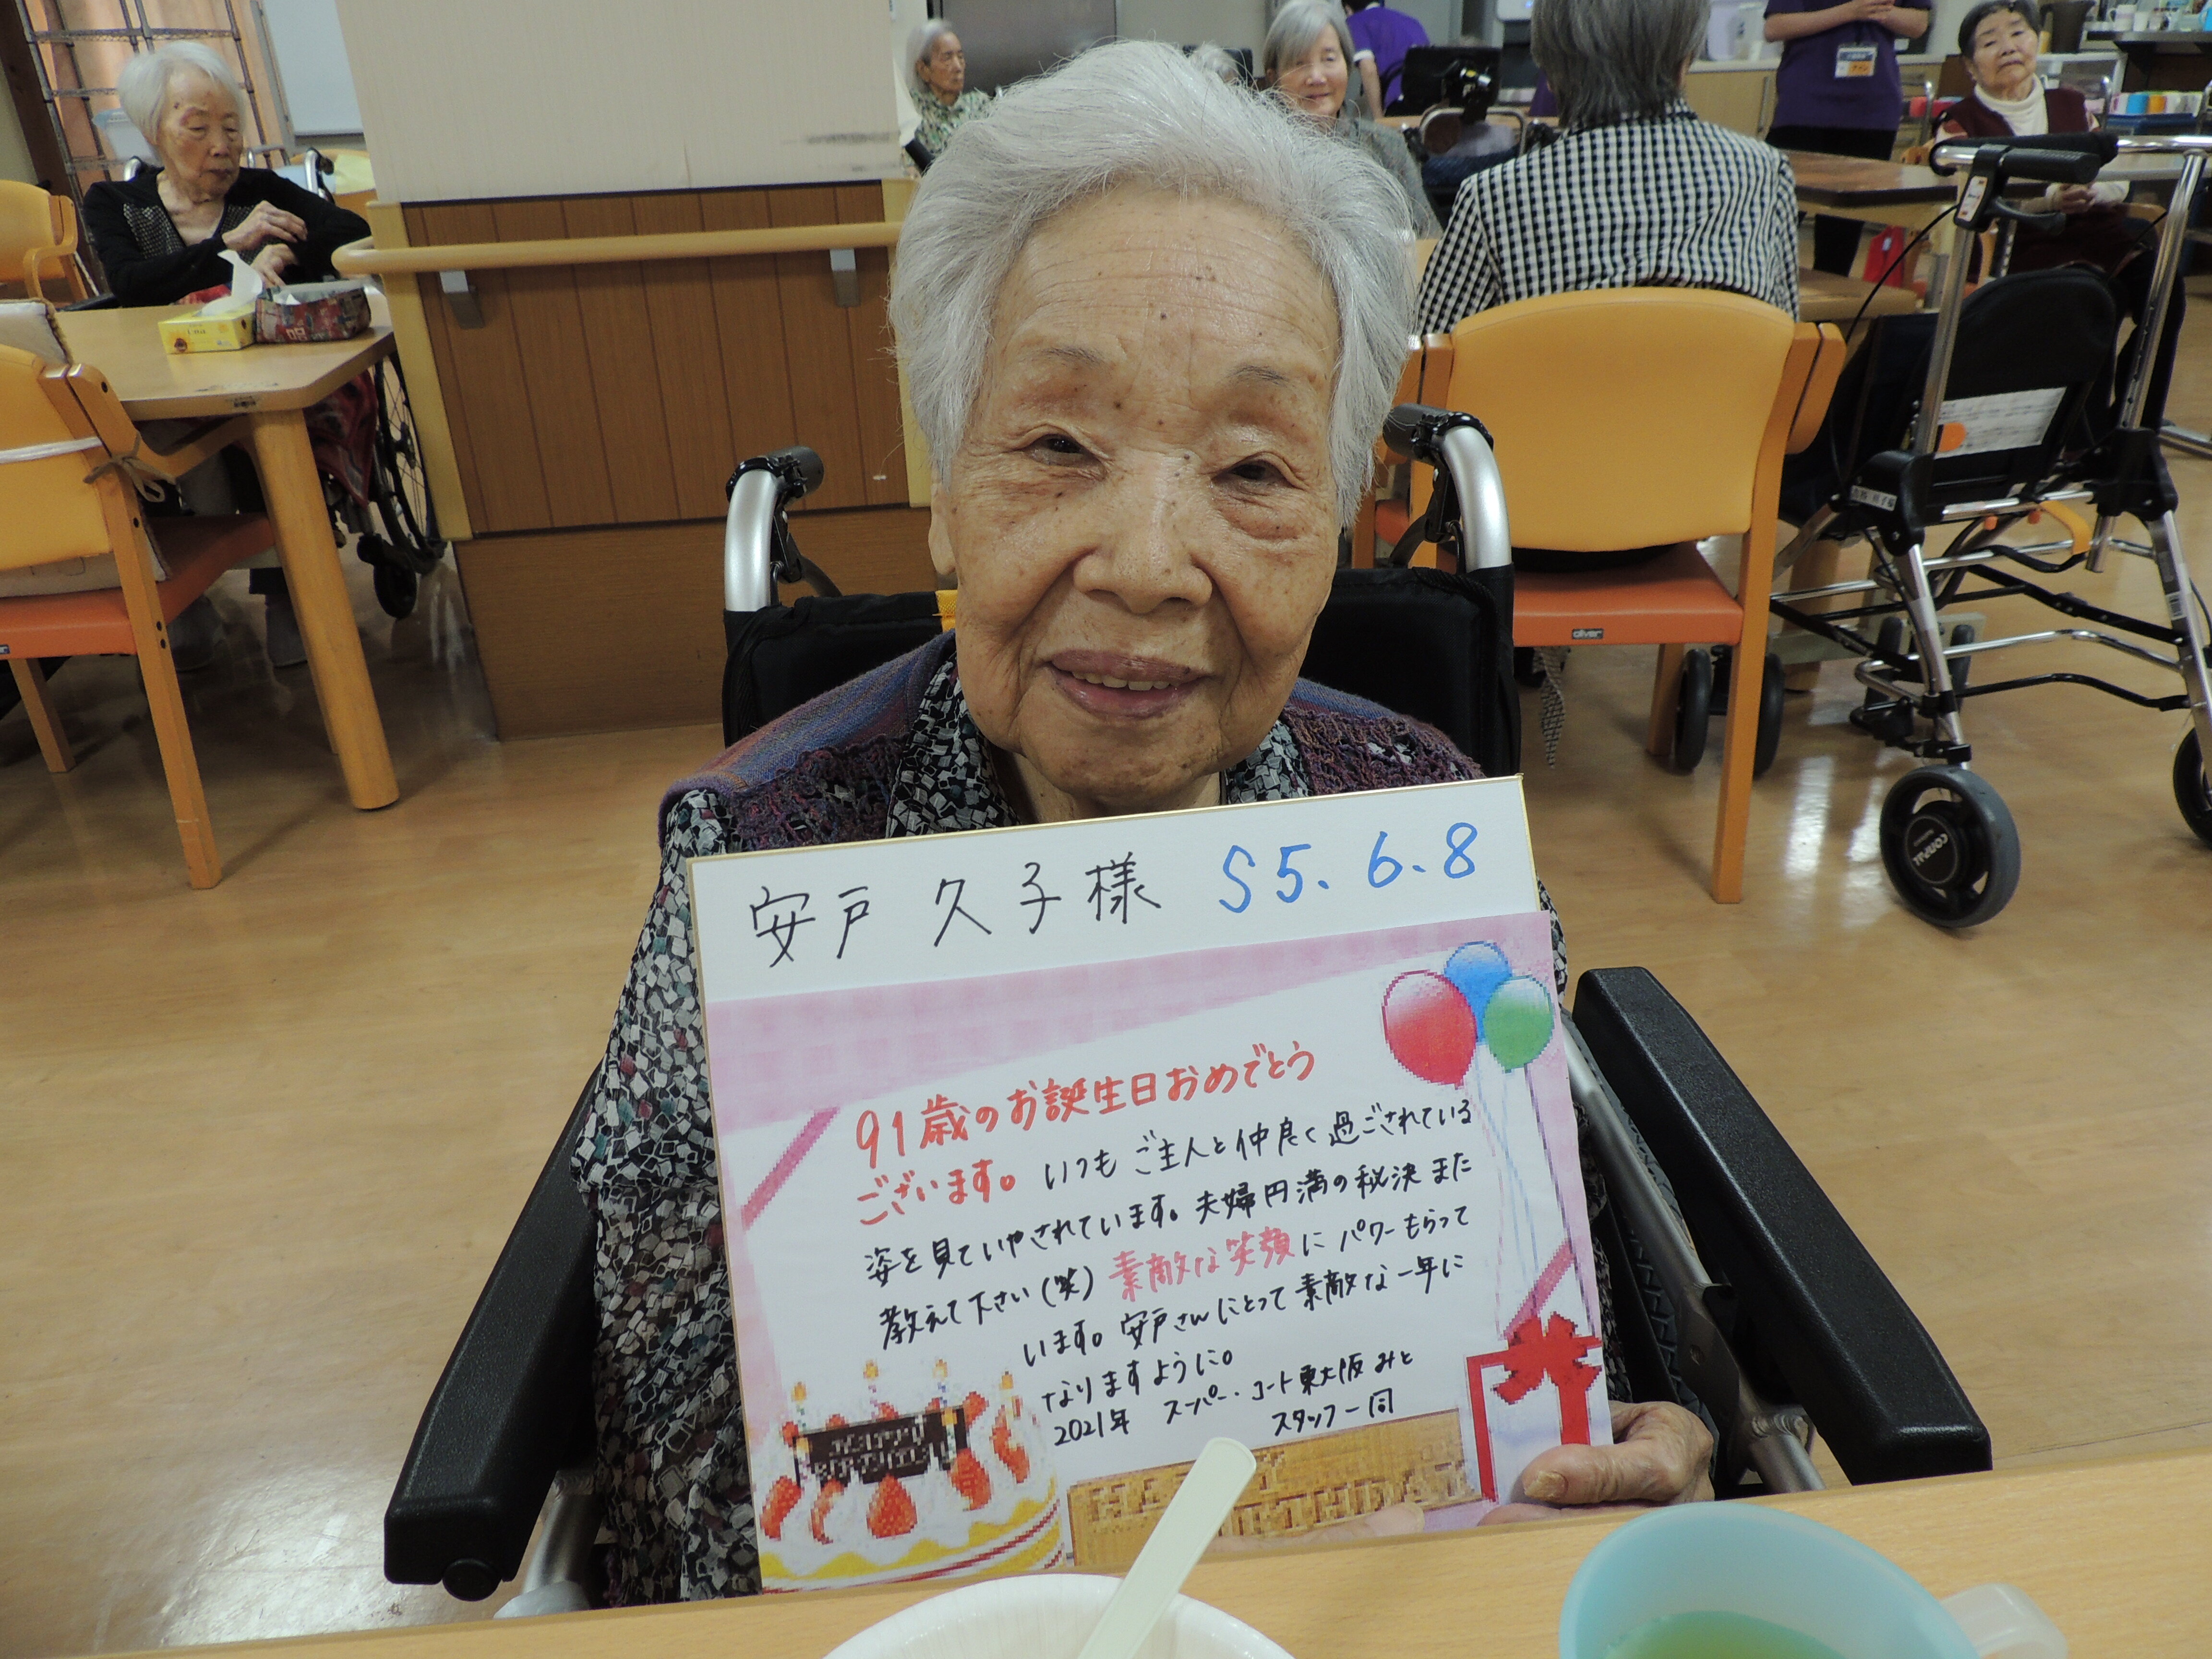 安戸 久子様 S5.6.8
91歳のお誕生日おめでとう
ございます。いつもご主人と仲良く過ごされている
姿を見ていやされています。夫婦円満の秘決また
教えて下さい(笑)素敵な笑顔にパワーもらって
います。安戸さんにとって素敵な一年に
なりますように。
2021年 スーパー・コート東大阪みと
スタッフ一同
HAPPY
BIRTHDAY
COMPAL
oliver